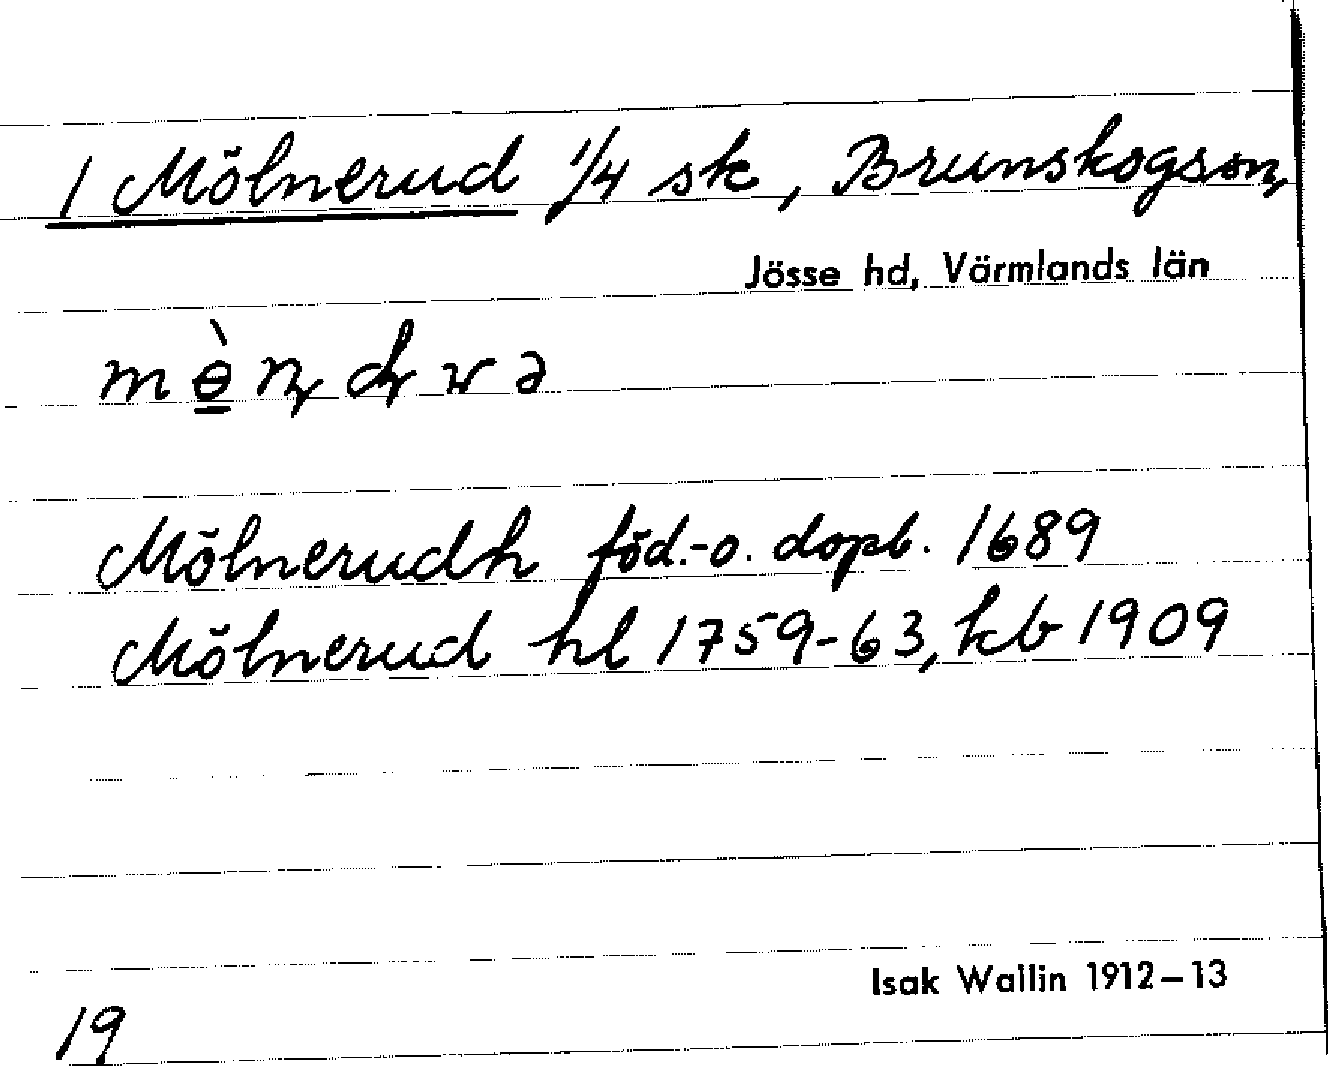 1 Mölnerud 1/4 sk, Brunskogs sn,
Jösse hd, Värmlands län
mɵ̲̀ɳɖɤə
Mölnerudh föd.-o. dopb. 1689
Mölnerud hl 1759-63, kb 1909
Isak Wallin 1912–13
19